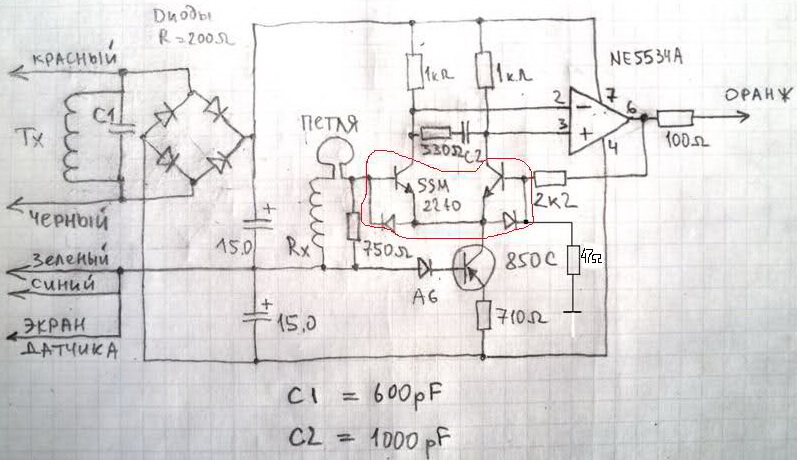 Диоды
R = 200Ω
КРАСНЫЙ
C1
Tx
ЧЕРНЫЙ
ЗЕЛЕНЫЙ
СИНИЙ
ЭКРАН
ДАТЧИКА
+
15,0
+
15,0
ПЕТЛЯ
Rx
750Ω
1кΩ
1кΩ
330Ω
C2
SSM
2210
A6
850C
710Ω
NE5534A
2
3
7
6
4
−
+
2к2
47Ω
100Ω
ОРАНЖ
C1 = 600pF
C2 = 1000pF